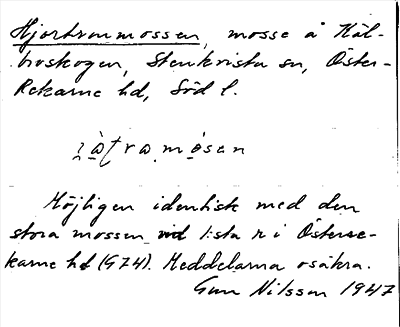 Hjortronmossen, mosse å Käl-
broskogen, Stenkvista sn, Öster-
Rekarne hd, Söd l.
Möjligen identisk med den
stora mossen vid 1:sta r i Österre-
karne hd (G74). Meddelarna osäkra.
Gun Nilsson 1947